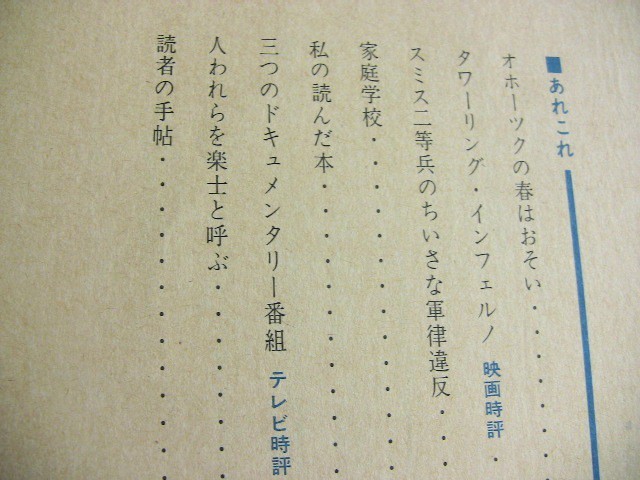 ■あれこれ
オホーツクの春はおそい・・・・・・・
タワーリング・インフェルノ 映画時評・
スミス二等兵のちいさな軍律違反・・・
家庭学校・・・・・・・・・・・・・
私の読んだ本・・・・・・・・・・・・
三つのドキュメンタリー番組 テレビ時評
人われらを楽士と呼ぶ・・・・・・・・
読者の手帖・・・・・・・・・・・・・